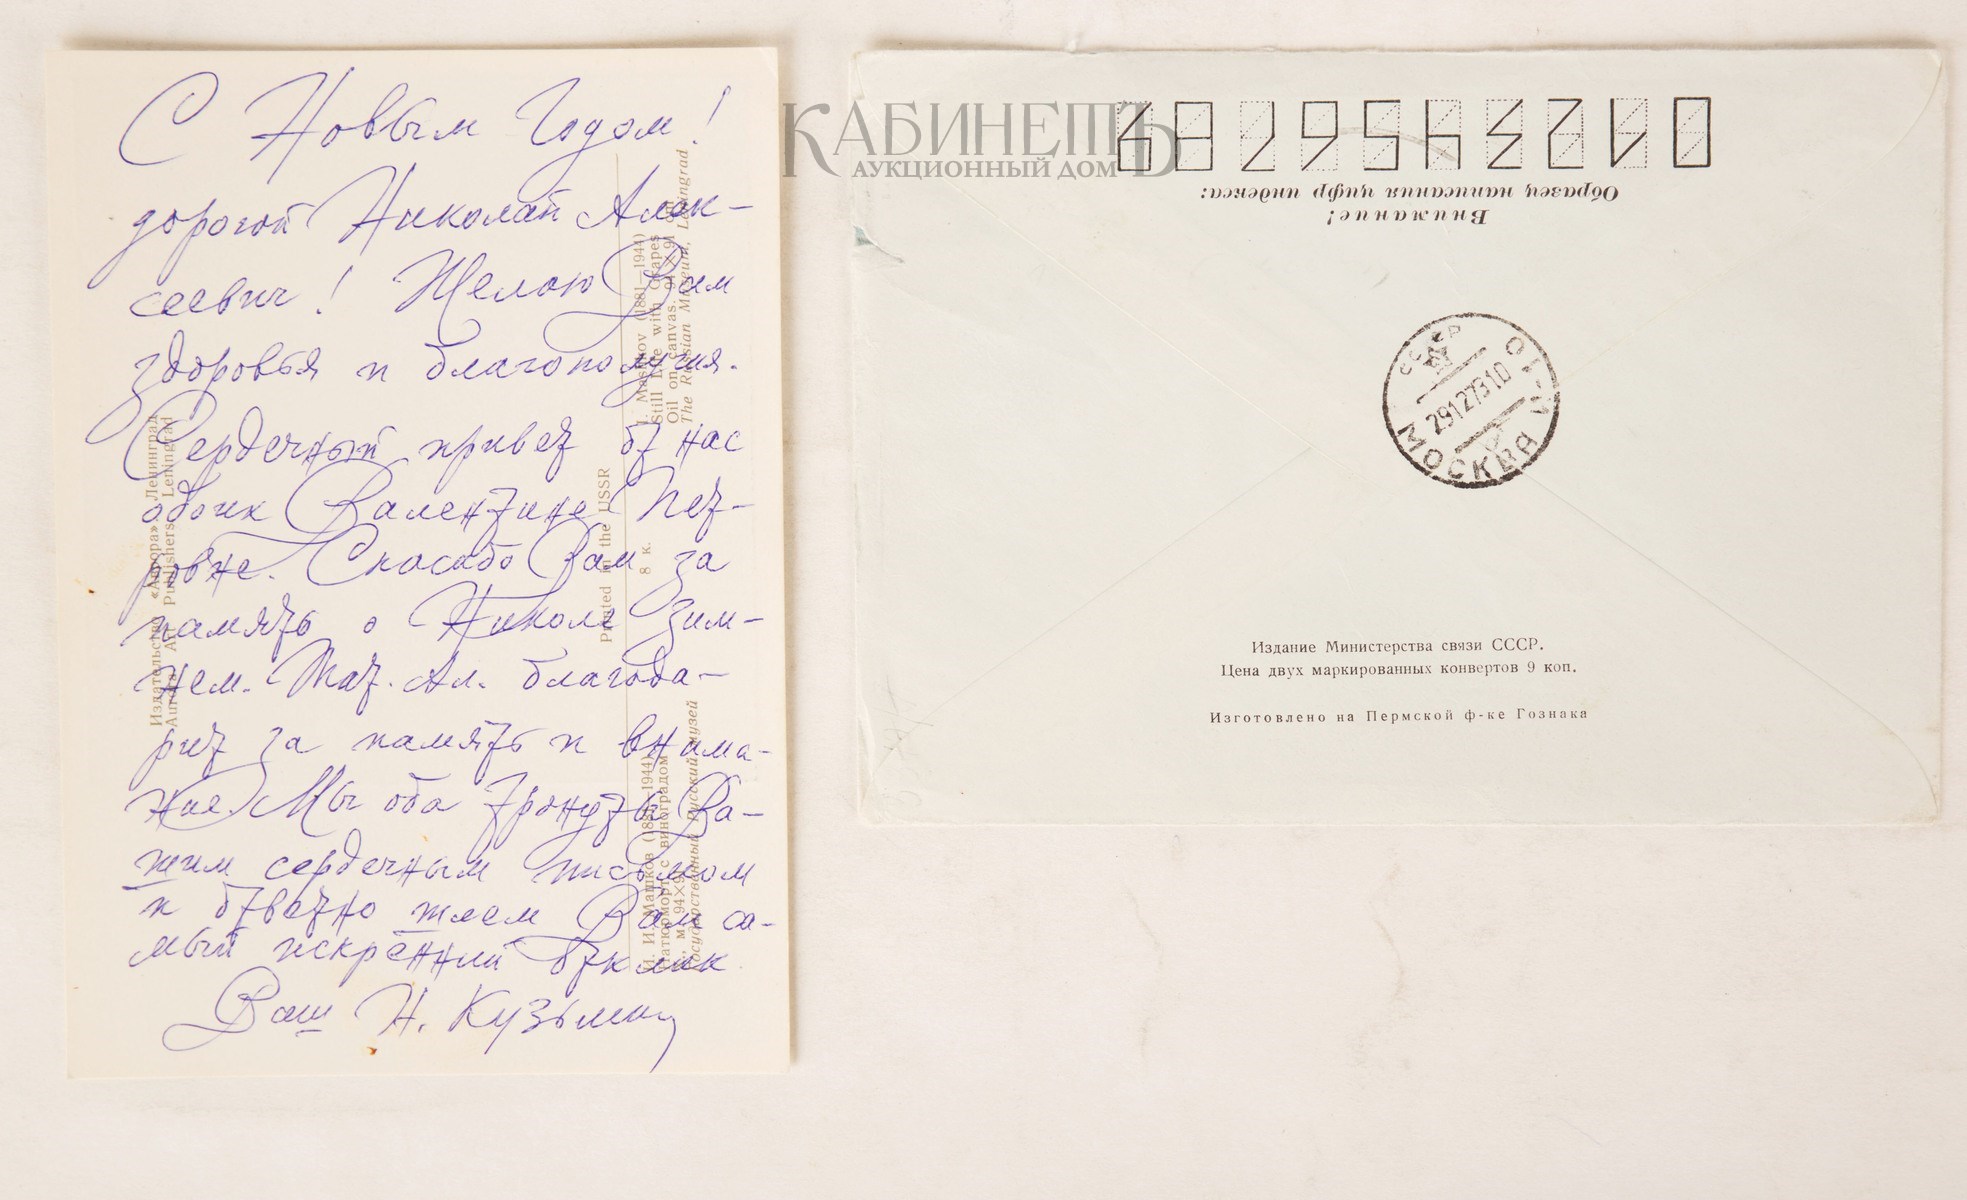 С Новым Годом!
дорогой Николай Алек-
сеевич! Желаю Вам
здоровья и благополучия.
Сердечный привет от нас
обоих Валентине Пет-
ровне. Спасибо Вам за
память о Николе Зим-
нем. Тат. Ал. благода-
рит за память и внима-
ние. Мы оба тронуты Ва-
шим сердечным письмом
и ответно шлем Вам са-
мый искренний отклик
Ваш Н. Кузьмин
Издательство «Аврора». Ленинград
Aurora Art Publishers. Leningrad
Printed in the USSR
8 к.
I. Mashkov (1881—1944)
Still Life with Grapes
Oil on canvas. 94×91 cm
The Russian Museum, Leningrad
И. И. Машков (1881—1944)
Натюрморт с виноградом
м., 94×91
Государственный Русский музей
КАБИНЕТЪ
АУКЦИОННЫЙ ДОМ
0123456789
Образец написания цифр индекса:
Внимание!
СССР
291273 10
МОСКВА
Издание Министерства связи СССР.
Цена двух маркированных конвертов 9 коп.
Изготовлено на Пермской ф-ке Гознака